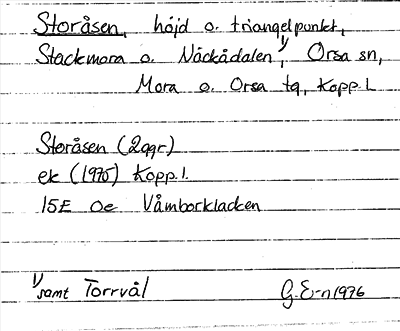 Storåsen, höjd o. triangelpunkt,
Stackmora o. Näckådalen 1), Orsa sn,
Mora o. Orsa tg, Kopp. l
Storåsen (2 ggr)
ek (1975) Kopp. l.
15E 0e Våmborklacken
1) samt Torrvål
G. E-n 1976